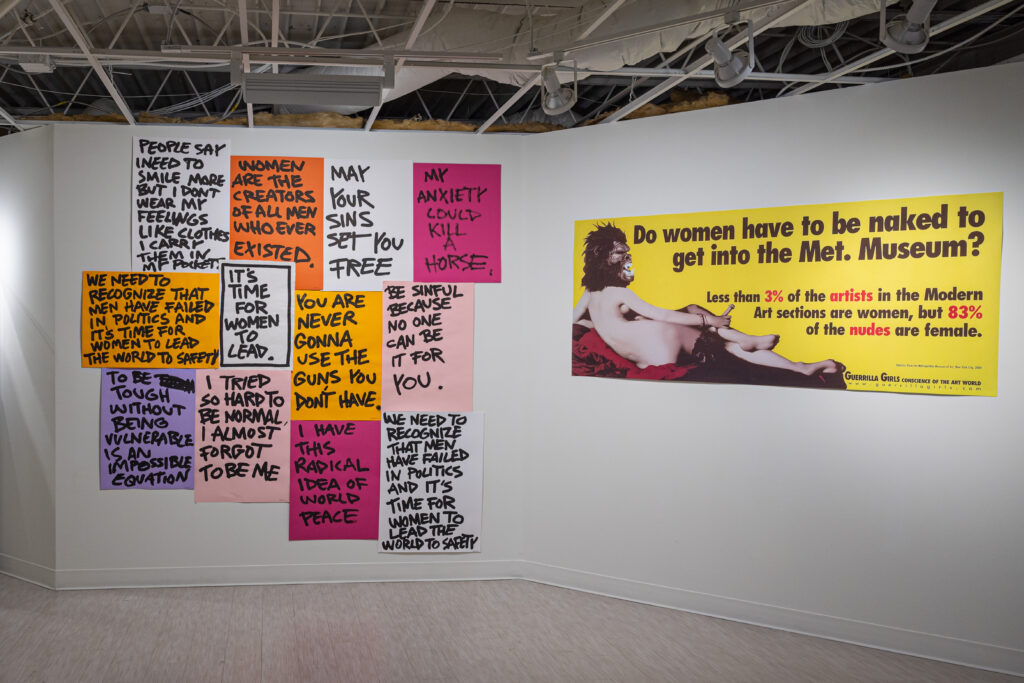 PEOPLE SAY
I NEED TO
SMILE MORE
BUT I DON'T
WEAR MY
FEELINGS
LIKE CLOTHES
I CARRY
THEM IN
MY POCKET.
WOMEN
ARE THE
CREATORS
OF ALL MEN
WHO EVER
EXISTED.
MAY
YOUR
SINS
SET YOU
FREE
MY
ANXIETY
COULD
KILL
A
HORSE.
WE NEED TO
RECOGNIZE THAT
MEN HAVE FAILED
IN POLITICS AND
IT'S TIME FOR
WOMEN TO LEAD
THE WORLD TO SAFETY
IT'S
TIME
FOR
WOMEN
TO
LEAD.
YOU ARE
NEVER
GONNA
USE THE
GUNS YOU
DON'T HAVE.
BE SINFUL
BECAUSE
NO ONE
CAN BE
IT FOR
YOU.
TO BE
TOUGH
WITHOUT
BEING
VULNERABLE
IS AN
IMPOSSIBLE
EQUATION
I TRIED
SO HARD TO
BE NORMAL,
I ALMOST
FORGOT
TO BE ME
I HAVE
THIS
RADICAL
IDEA OF
WORLD
PEACE
WE NEED TO
RECOGNIZE
THAT MEN
HAVE FAILED
IN POLITICS
AND IT'S
TIME FOR
WOMEN TO
LEAD THE
WORLD TO SAFETY
Do women have to be naked to
get into the Met. Museum?
Less than 3% of the artists in the Modern
Art sections are women, but 83%
of the nudes are female.
GUERRILLA GIRLS CONSCIENCE OF THE ART WORLD
www.guerrillagirls.com